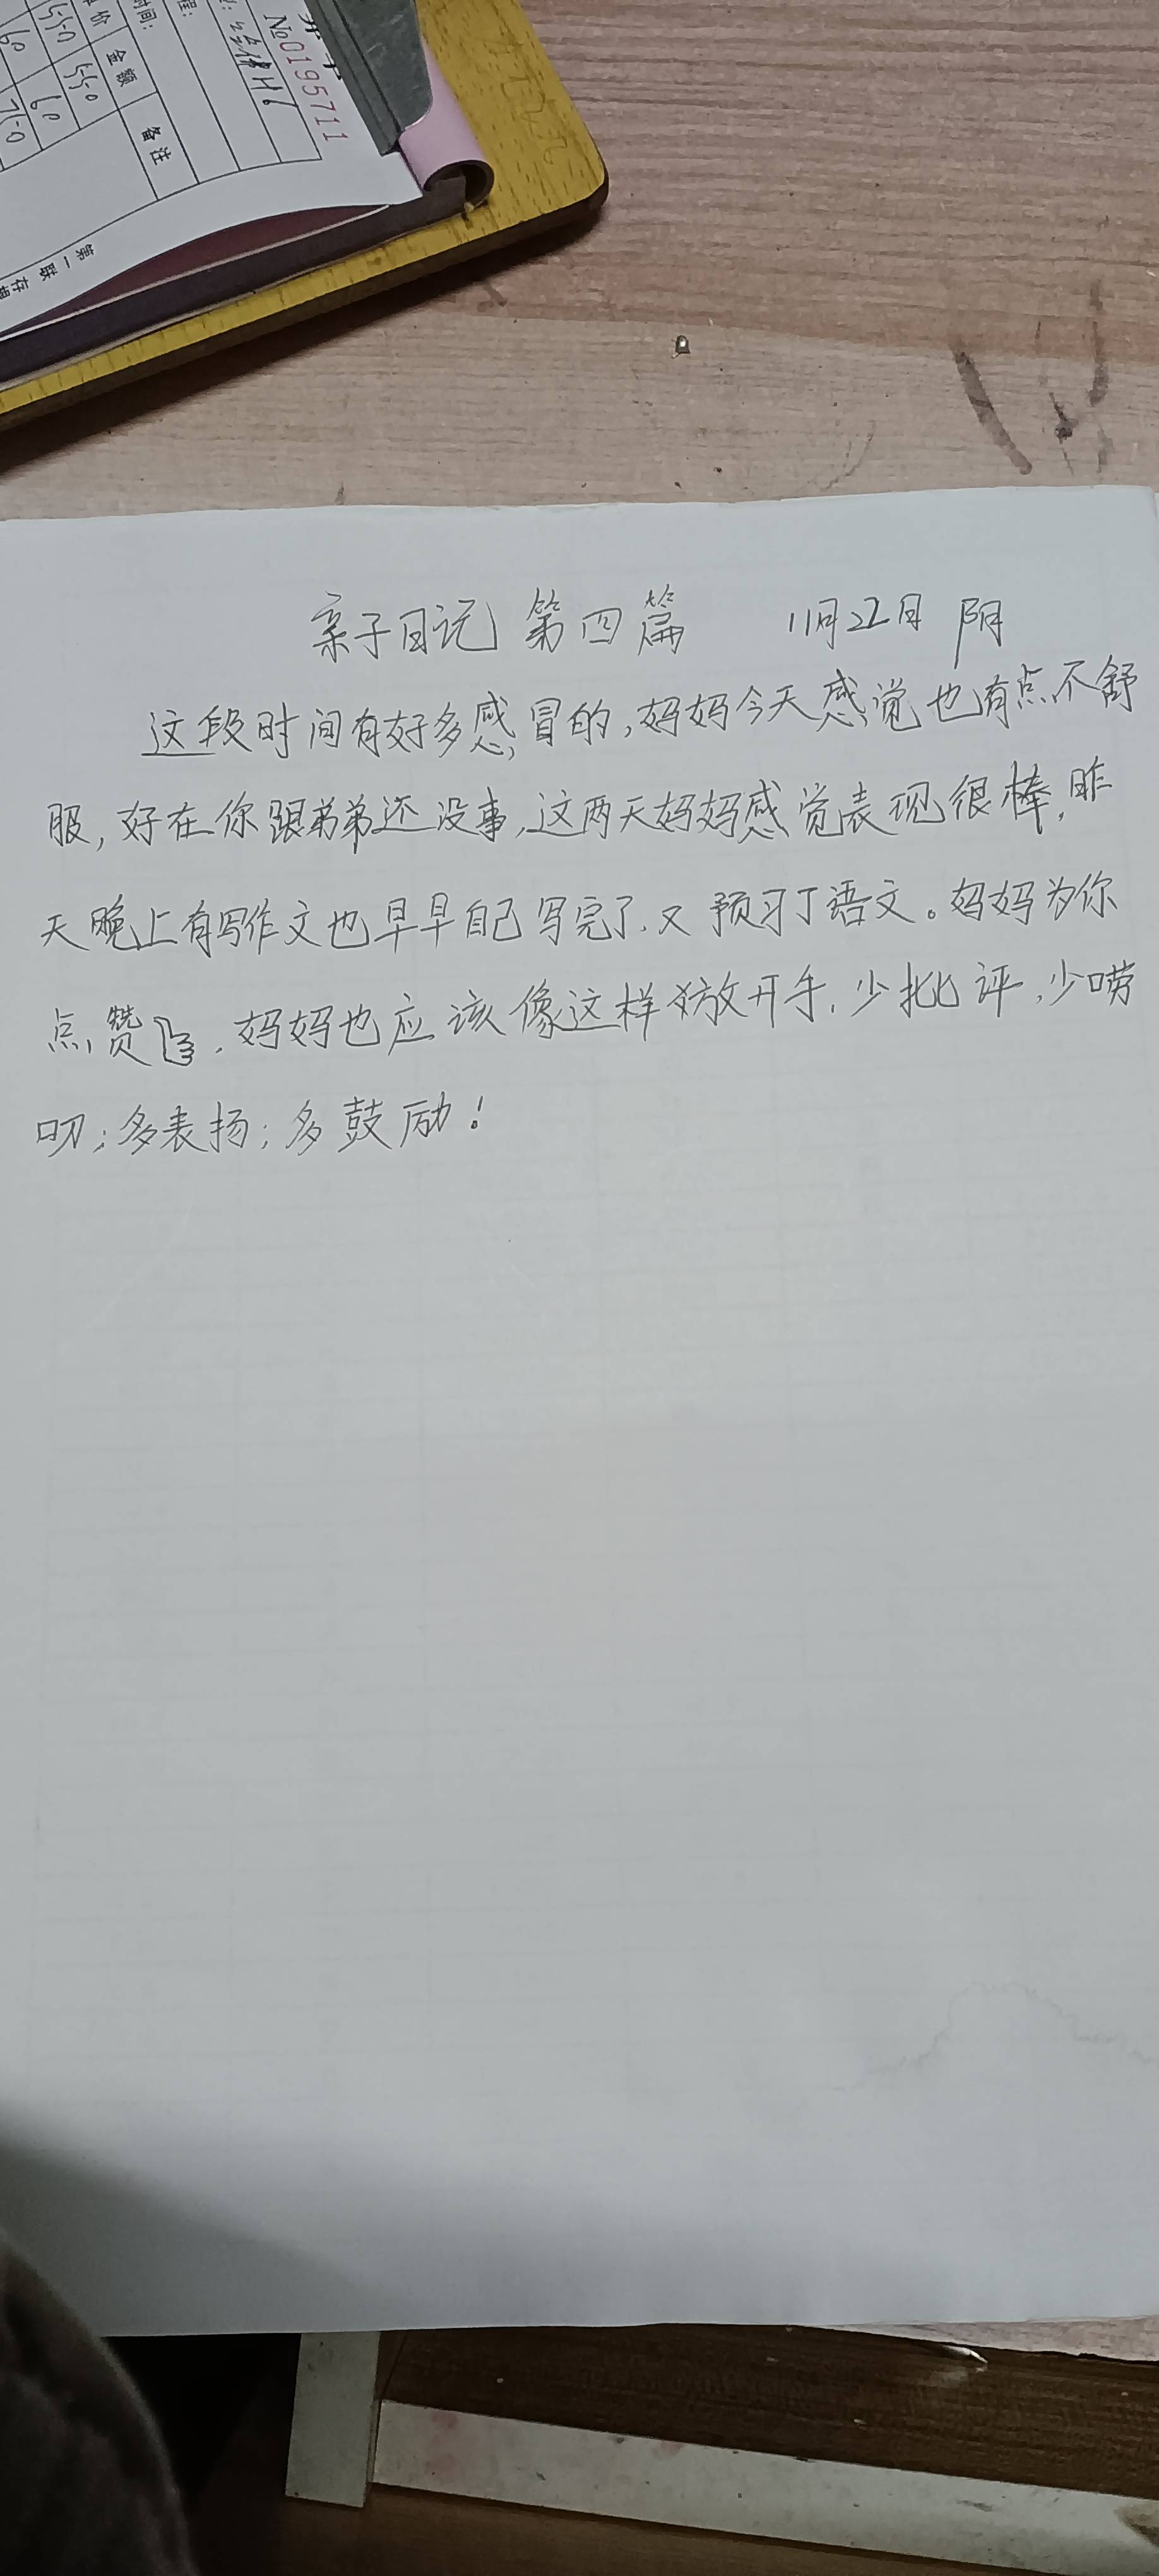 №0195711
单价 金额 备注
550 550
60 60
710
时间:
第一联 存根
亲子日记 第四篇 11月22日 阴
这段时间有好多感冒的,妈妈今天感觉也有点不舒
服,好在你跟弟弟还没事,这两天妈妈感觉表现很棒,昨
天晚上有写作文也早早自己写完了,又预习了语文。妈妈为你
点赞👍,妈妈也应该像这样放开手,少批评,少唠
叨;多表扬;多鼓励!